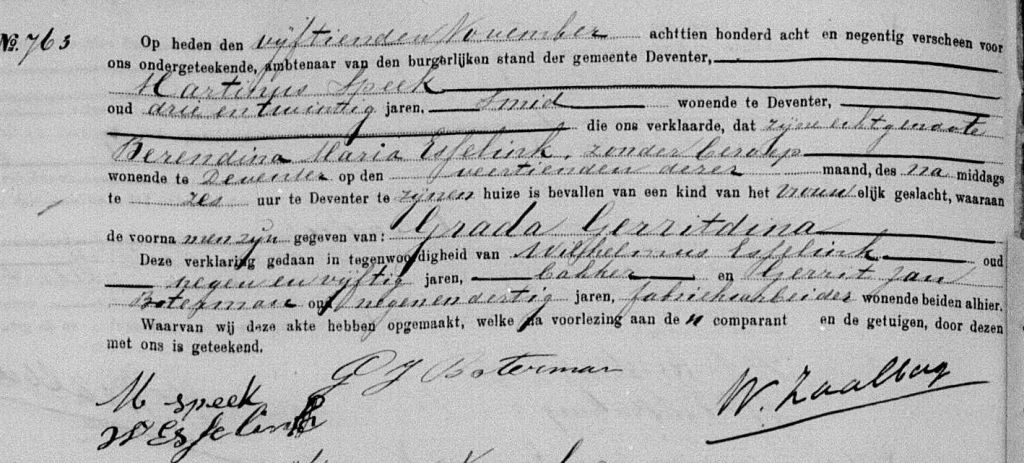 No. 763
Op heden den vijftienden November achttien honderd acht en negentig verscheen voor
ons ondergeteekende, ambtenaar van den burgerlijken stand der gemeente Deventer,
Martinus Speek
oud drie en twintig jaren, Smid wonende te Deventer,
die ons verklaarde, dat zijne echtgenoote
Berendina Maria Esselink, zonder beroep
wonende te Deventer op den veertienden dezer maand, des na middags
te zes uur te Deventer te zijnen huize is bevallen van een kind van het vrouwelijk geslacht, waaraan
de voornamen zijn gegeven van: Grada Gerritdina
Deze verklaring gedaan in tegenwoordigheid van Wilhelmus Esselink oud
negen en vijftig jaren, bakker en Gerrit Jan
Boterman oud negenendertig jaren, fabriekarbeider wonende beiden alhier.
Waarvan wij deze akte hebben opgemaakt, welke na voorlezing aan de n comparant en de getuigen, door dezen
met ons is geteekend.
G J Boterman
M speek
W Esselink
W. Zaalberg